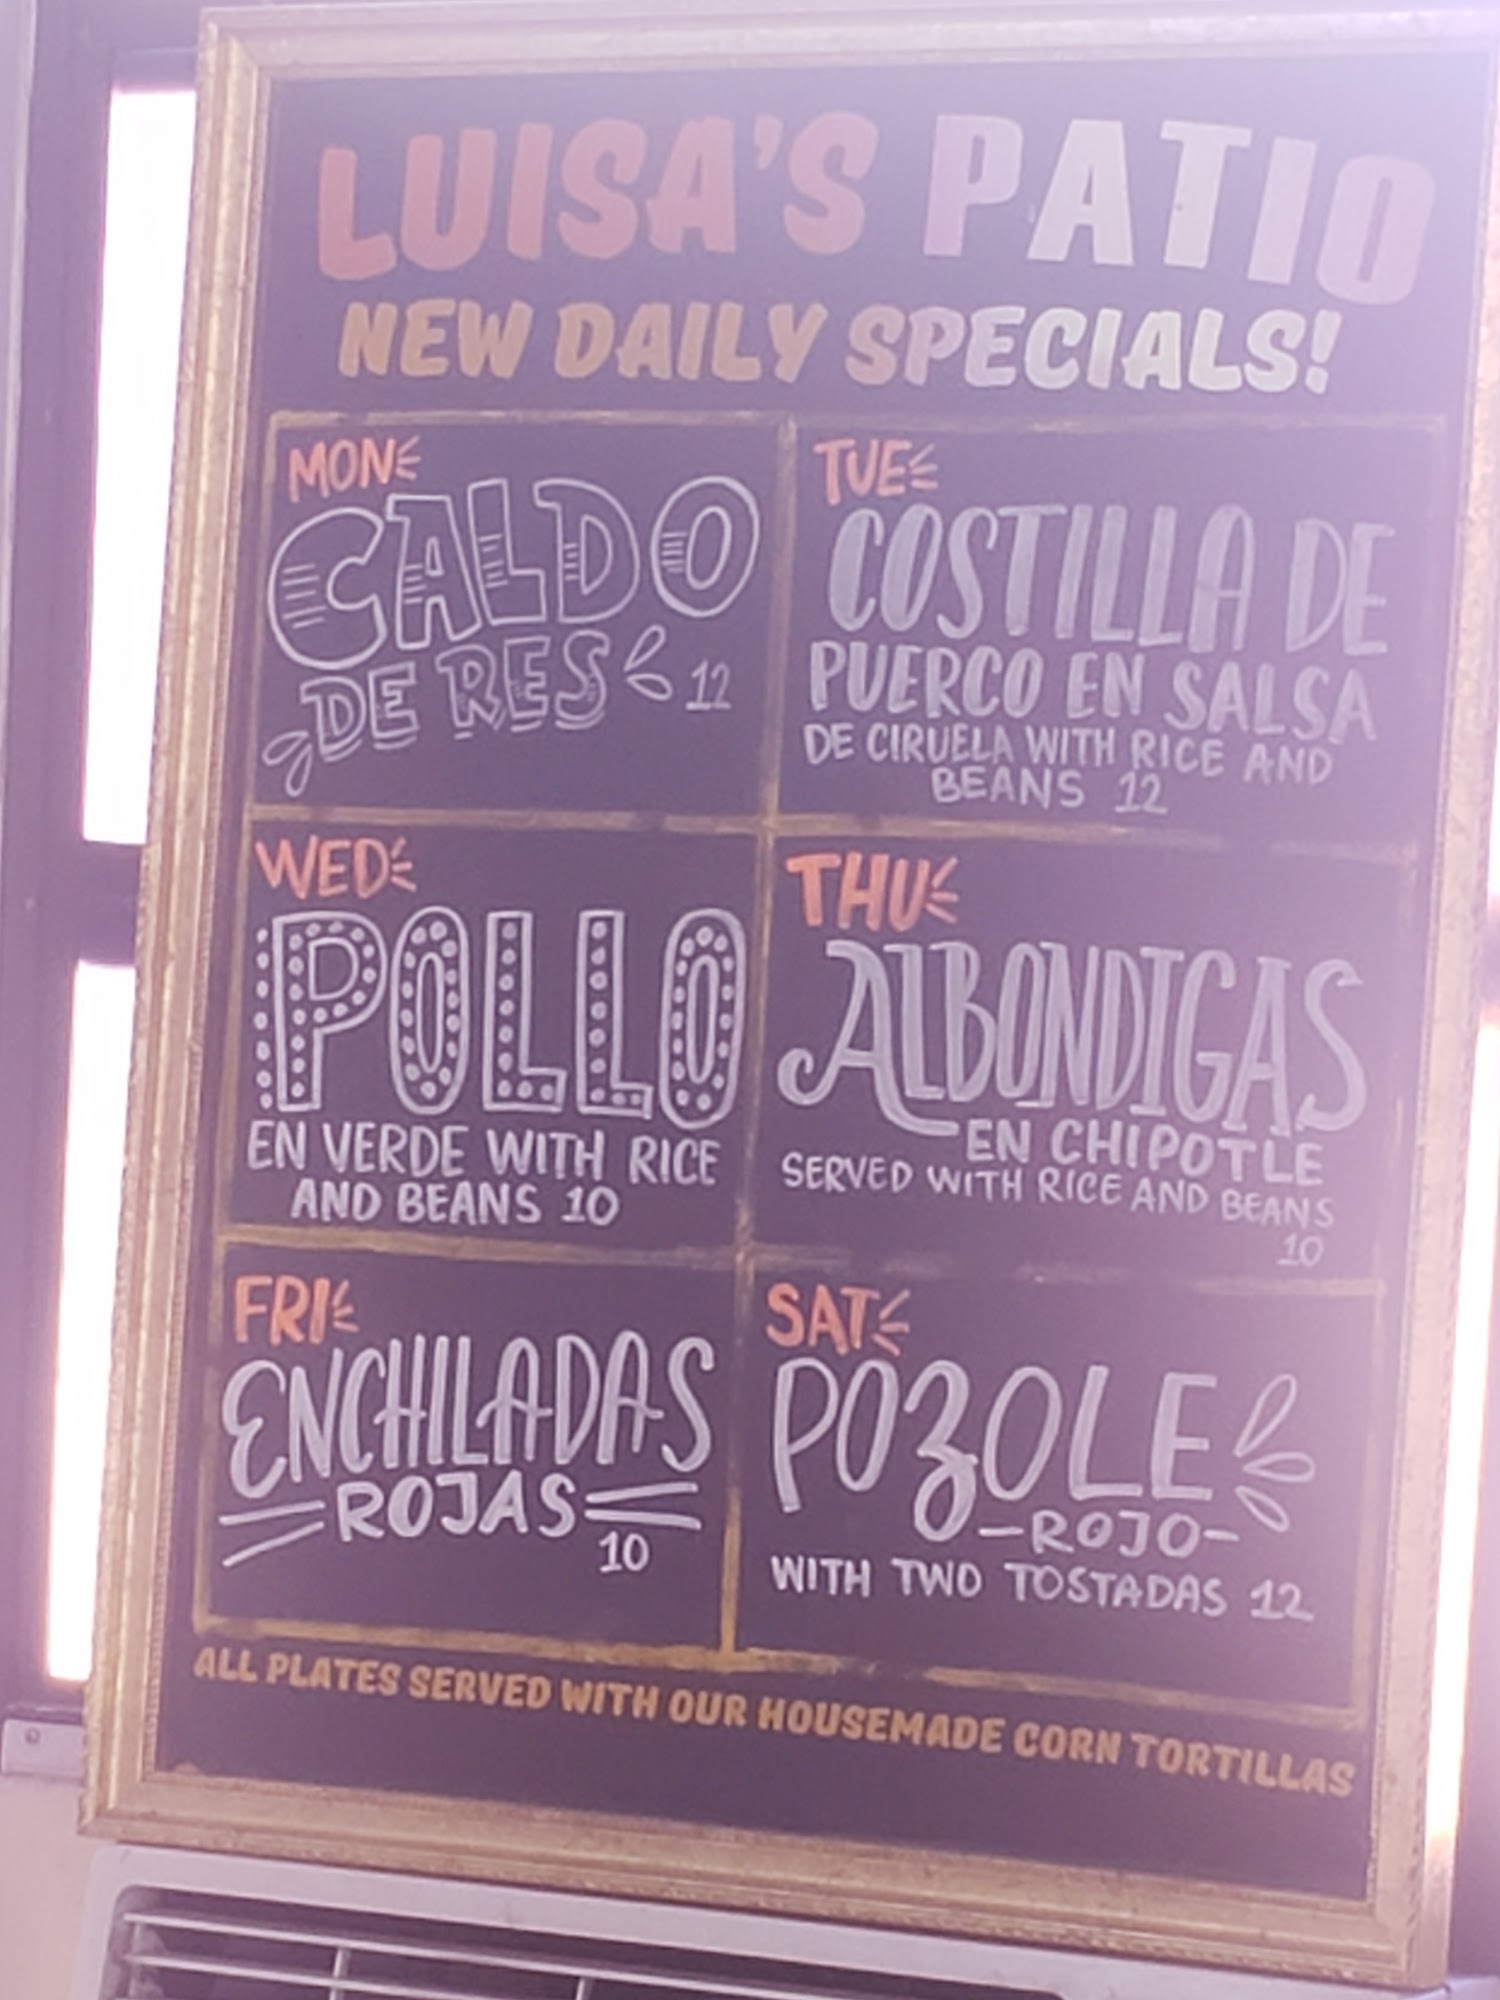 LUISA'S PATIO
NEW DAILY SPECIALS!
MON
CALDO
DE RES 12
TUE
COSTILLA DE
PUERCO EN SALSA
DE CIRUELA WITH RICE AND
BEANS 12
WED
POLLO
EN VERDE WITH RICE
AND BEANS 10
THU
ALBONDIGAS
EN CHIPOTLE
SERVED WITH RICE AND BEANS
10
FRI
ENCHILADAS
ROJAS
10
SAT
POZOLE
-ROJO-
WITH TWO TOSTADAS 12
ALL PLATES SERVED WITH OUR HOUSEMADE CORN TORTILLAS